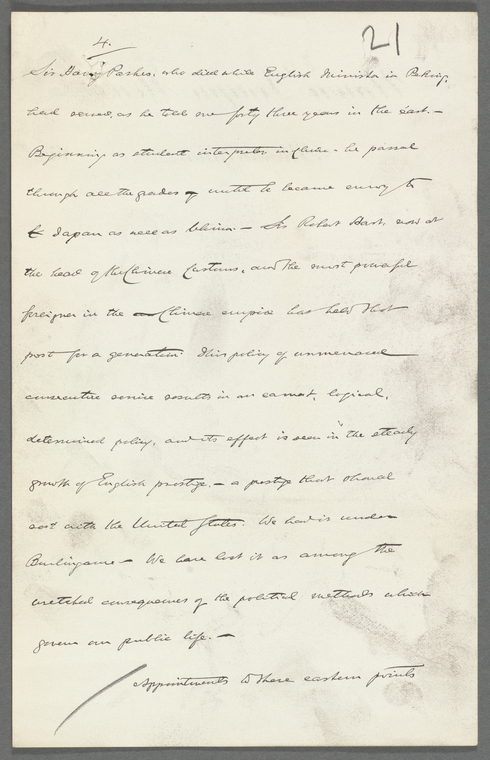 4.
21
Sir Harry Parkes, who died while English Minister in Peking,
had served, as he told me forty three years in the east. —
Beginning as student interpreter in China – he passed
through all the grades until he became envoy to
Japan as well as China. — Sir Robert Hart, now at
the head of the Chinese Customs, and the most powerful
foreigner in the Chinese empire has held that
post for a generation. This policy of unmenaced
consecutive service results in an earnest, logical,
determined policy, and its effect is seen in the steady
growth of English prestige, — a prestige that should
rest with the United States. We had it under
Burlingame — We have lost it as among the
wretched consequences of the political methods which
govern our public life. —
Appointments to these eastern points